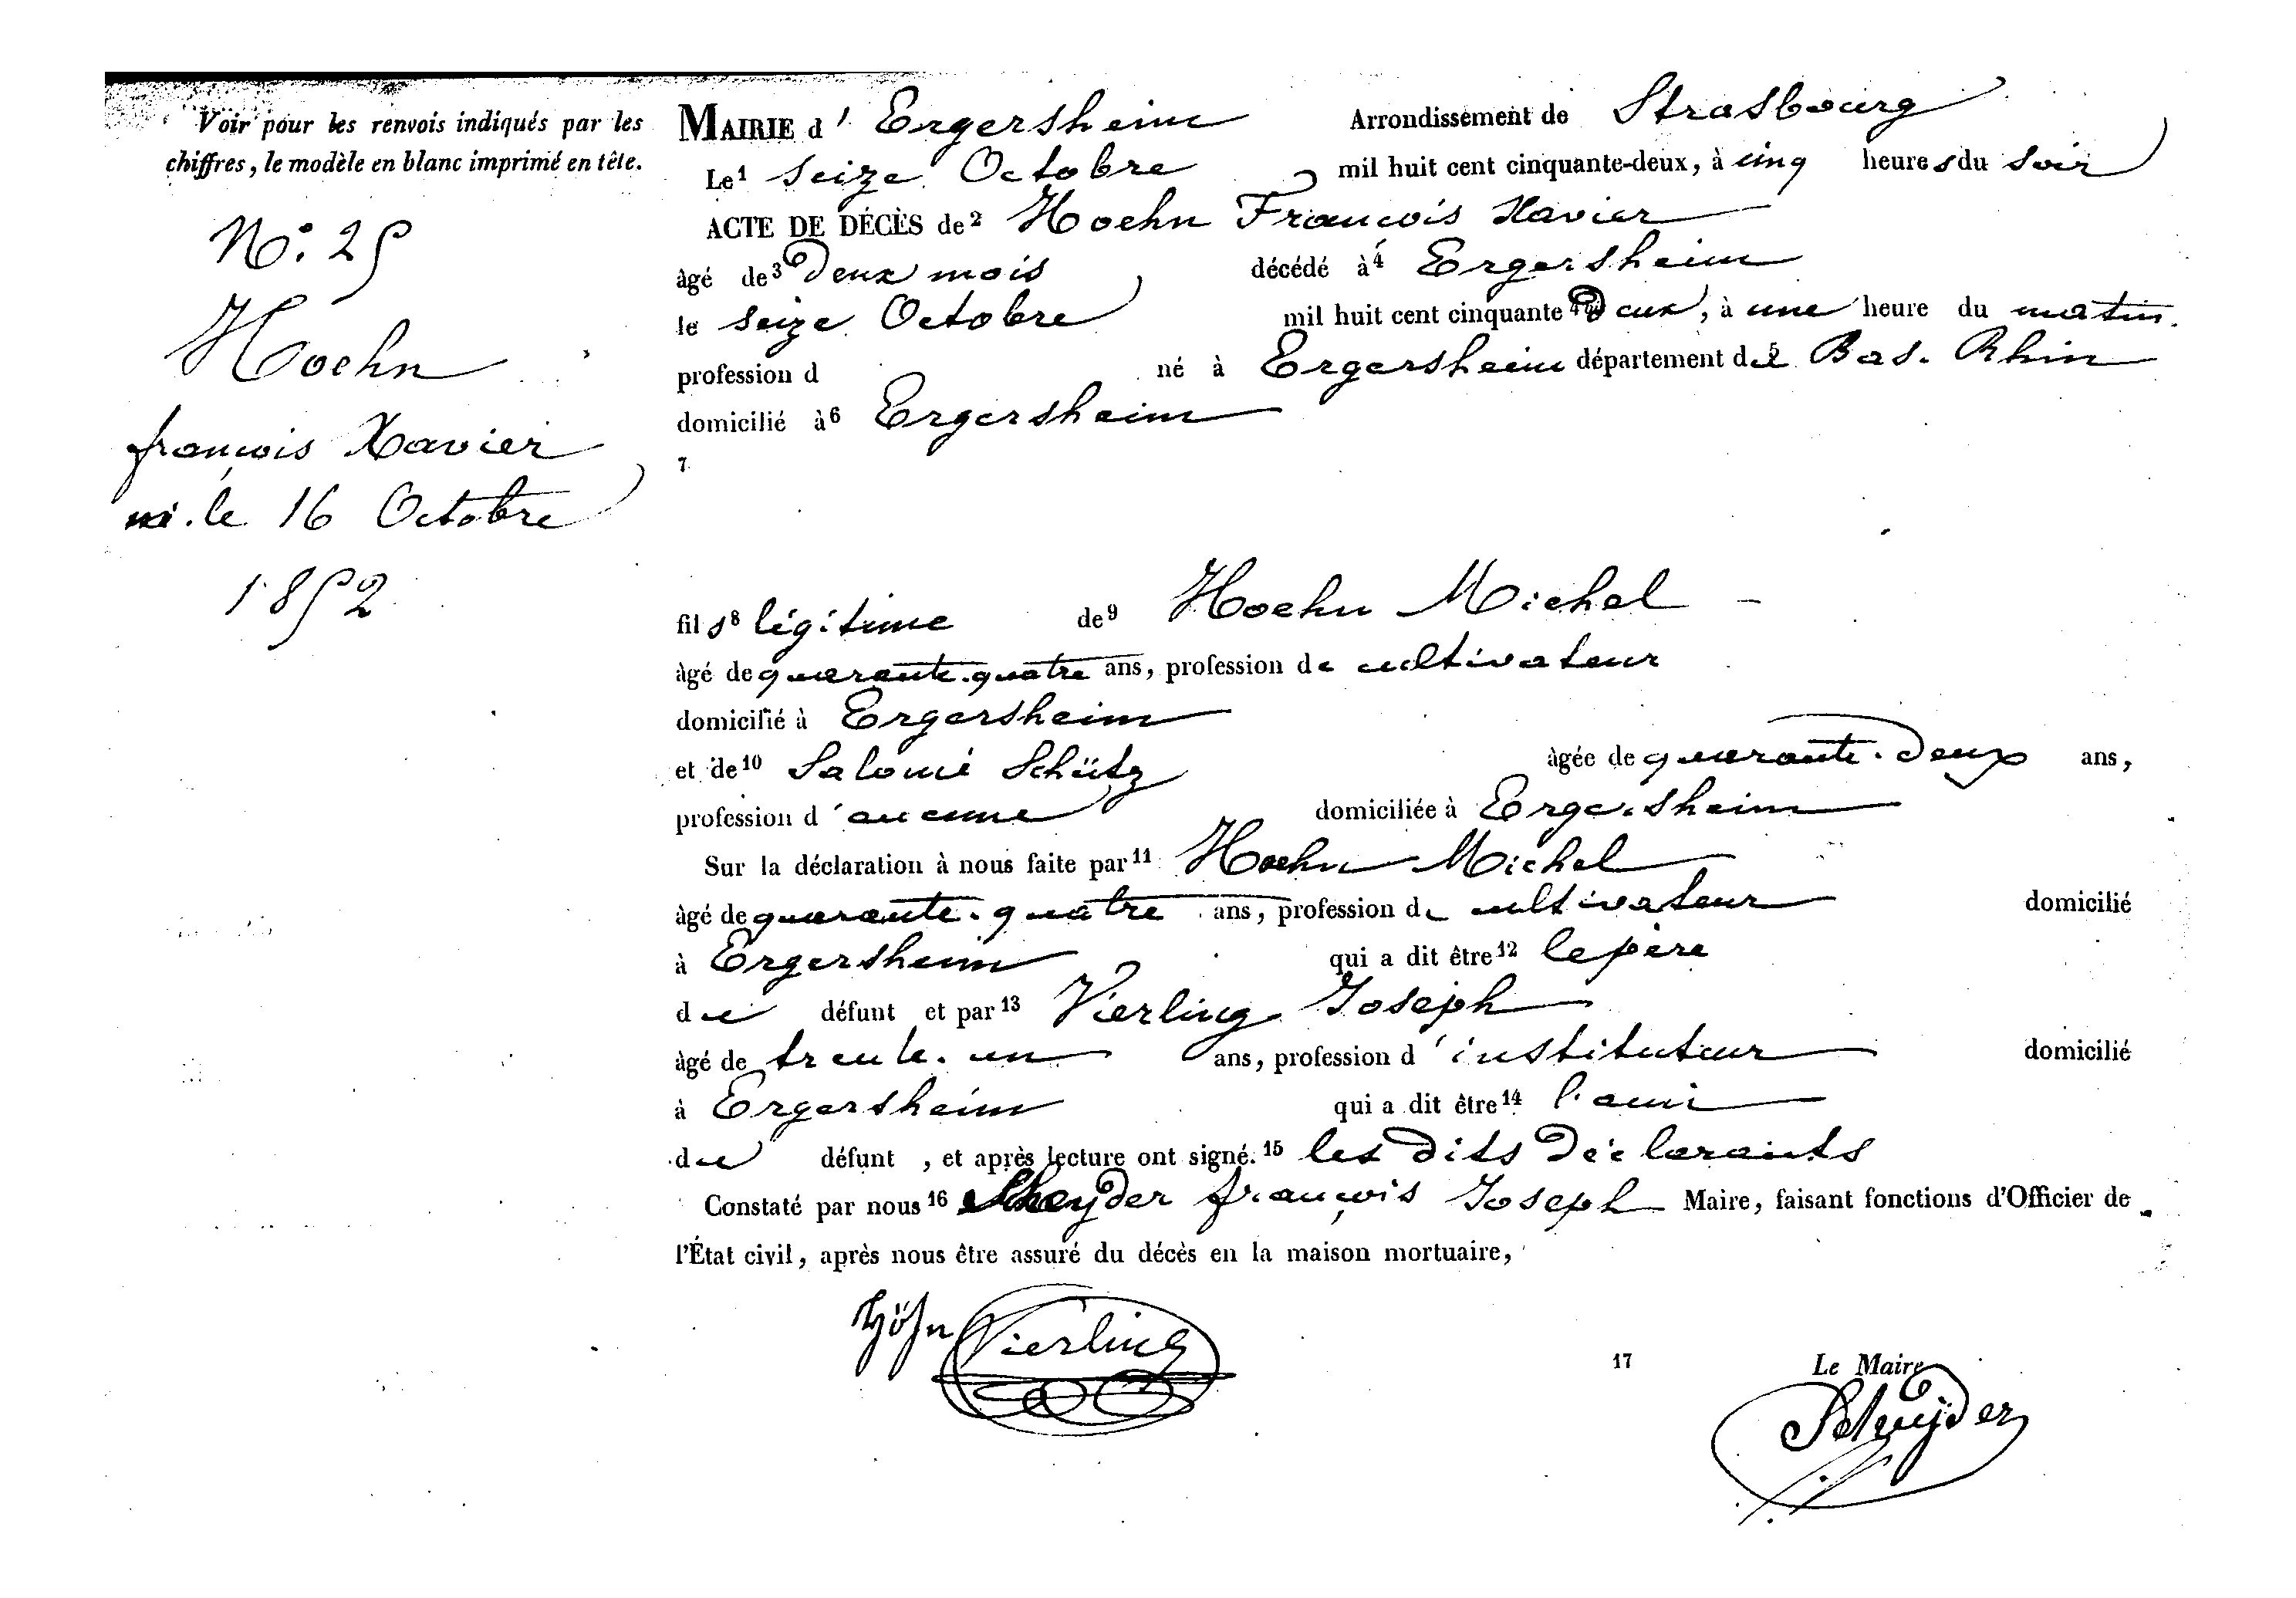 Voir pour les renvois indiqués par les
chiffres, le modèle en blanc imprimé en tête.
No: 25
Hoehn
françois Xavier
le 16 Octobre
1852
MAIRIE d' Ergersheim Arrondissement de Strasbourg
Le 1 Seize Octobre mil huit cent cinquante-deux, à cinq heures du soir
ACTE DE DÉCÈS de 2 Hoehn François Xavier
àgé de 3 Deux mois décédé à 4 Ergersheim
le seize Octobre mil huit cent cinquante Deux, à une heure du matin.
profession d né à Ergersheim département de 5 Bas-Rhin
domicilié à 6 Ergersheim
7
fils 8 légitime de 9 Hoehn Michel -
àgé de quarante-quatre ans, profession de cultivateur
domicilié à Ergersheim
et de 10 Salomé Schütz àgée de quarante-Deux ans,
profession d'aucune domiciliée à Ergersheim
Sur la déclaration à nous faite par 11 Hoehn Michel
àgé de quarante-quatre ans, profession de cultivateur domicilié
à Ergersheim qui a dit être 12 le père
du défunt et par 13 Vierling Joseph
àgé de trente-un ans, profession d'instituteur domicilié
à Ergersheim qui a dit être 14 l'ami
du défunt , et après lecture ont signé. 15 les dits Déclarants
Constaté par nous 16 françois Joseph Maire, faisant fonctions d'Officier de
l'État civil, après nous être assuré du décès en la maison mortuaire,
Höhn Vierling
17 Le Maire